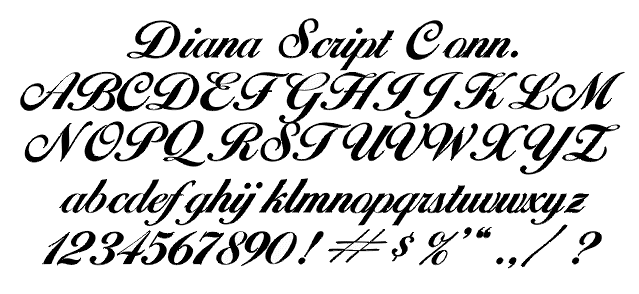 Diana Script Conn.
ABCDEFGHIJKLM
NOPQRSTUVWXYZ
abcdefghij klmnopqrstuvwxyz
1234567890! # $ %'“ ., / ?